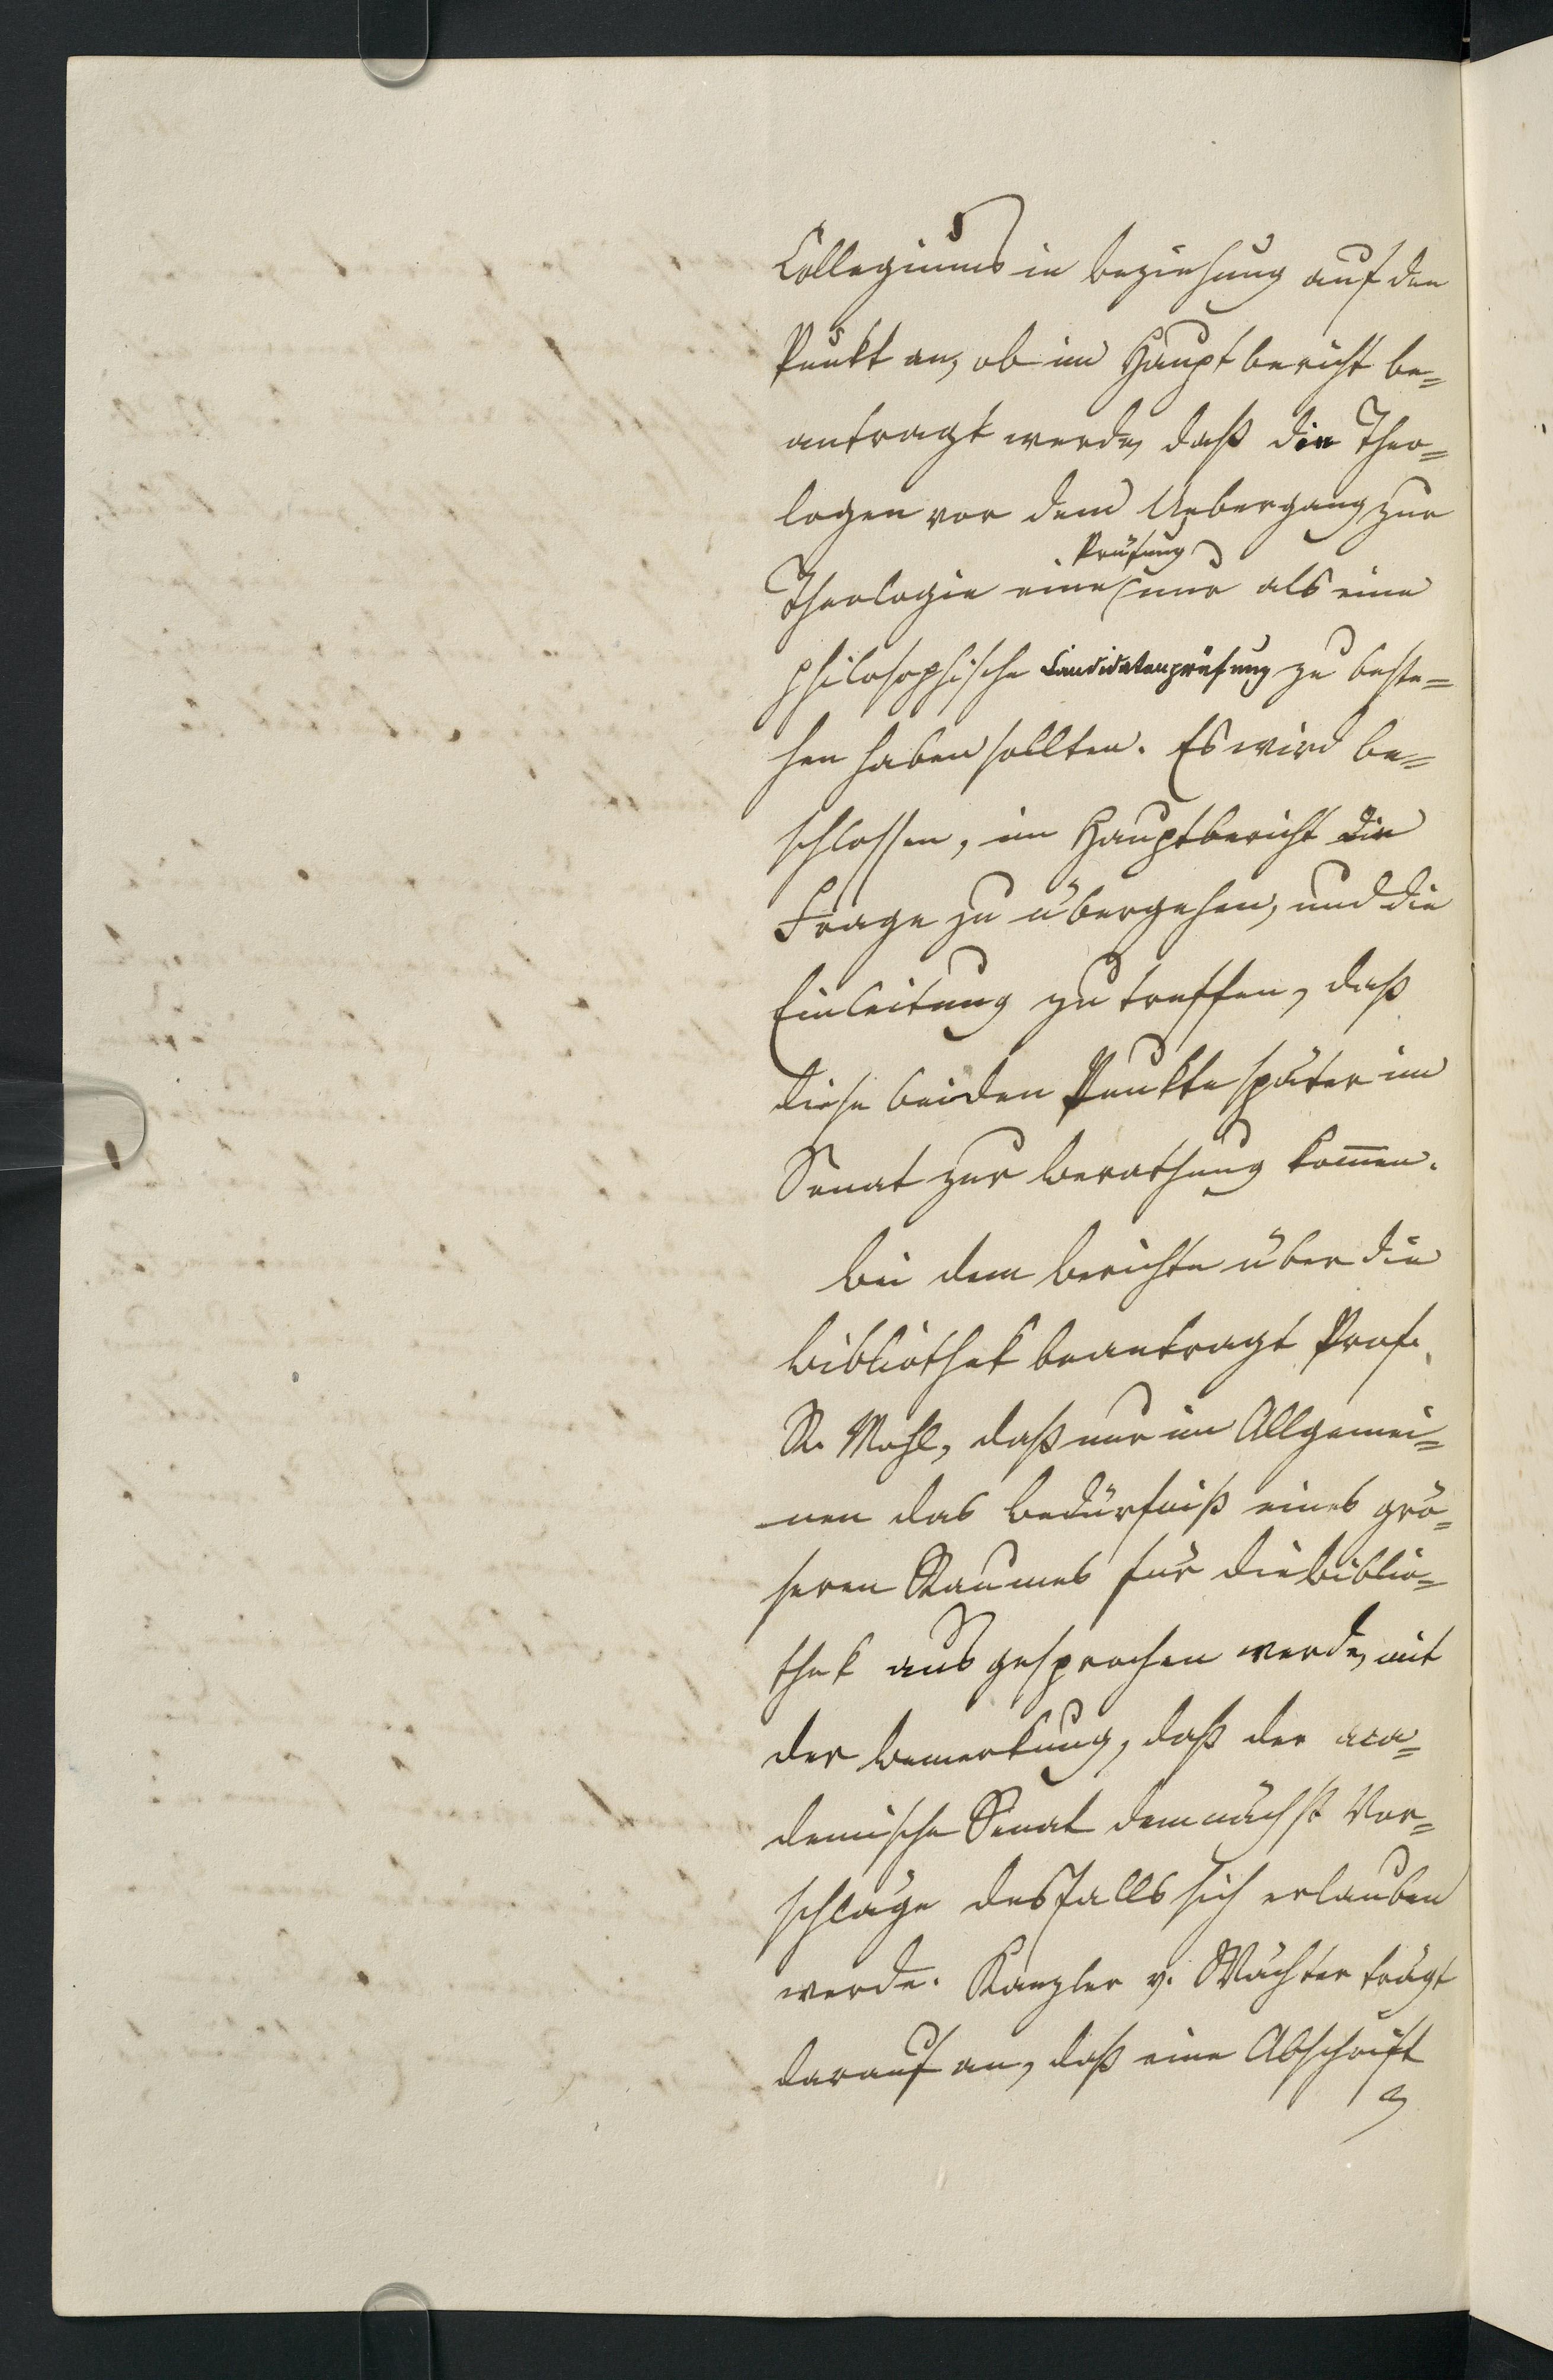 Collegiums in Beziehung auf den
Punkt an, ob im Hauptbericht be=
antragt werde, daß die Theo=
logen vor dem Uebergang zur
Prüfung
Theologie eine nur als eine
philosophische Candidatenprüfung zu beste=
hen haben sollten. Es wird be=
schlossen, im Hauptbericht die
Frage zu übergehen, und die
Einleitung zu treffen, daß
diese beiden Punkte später im
Senat zur Berathung kom̅en.
Bei dem Berichte über die
Bibliothek beantragt Prof.
R. Mohl, daß nur im Allgemei=
nen das Bedürfniß eines grö=
seren Raumes für die Biblio=
thek ausgesprochen werde, mit
der Bemerkung, daß der aca=
demische Senat demnächst Vor=
schläge desfalls sich erlauben
werde. Kanzler v. Wächter trägt
darauf an, daß eine Abschrift